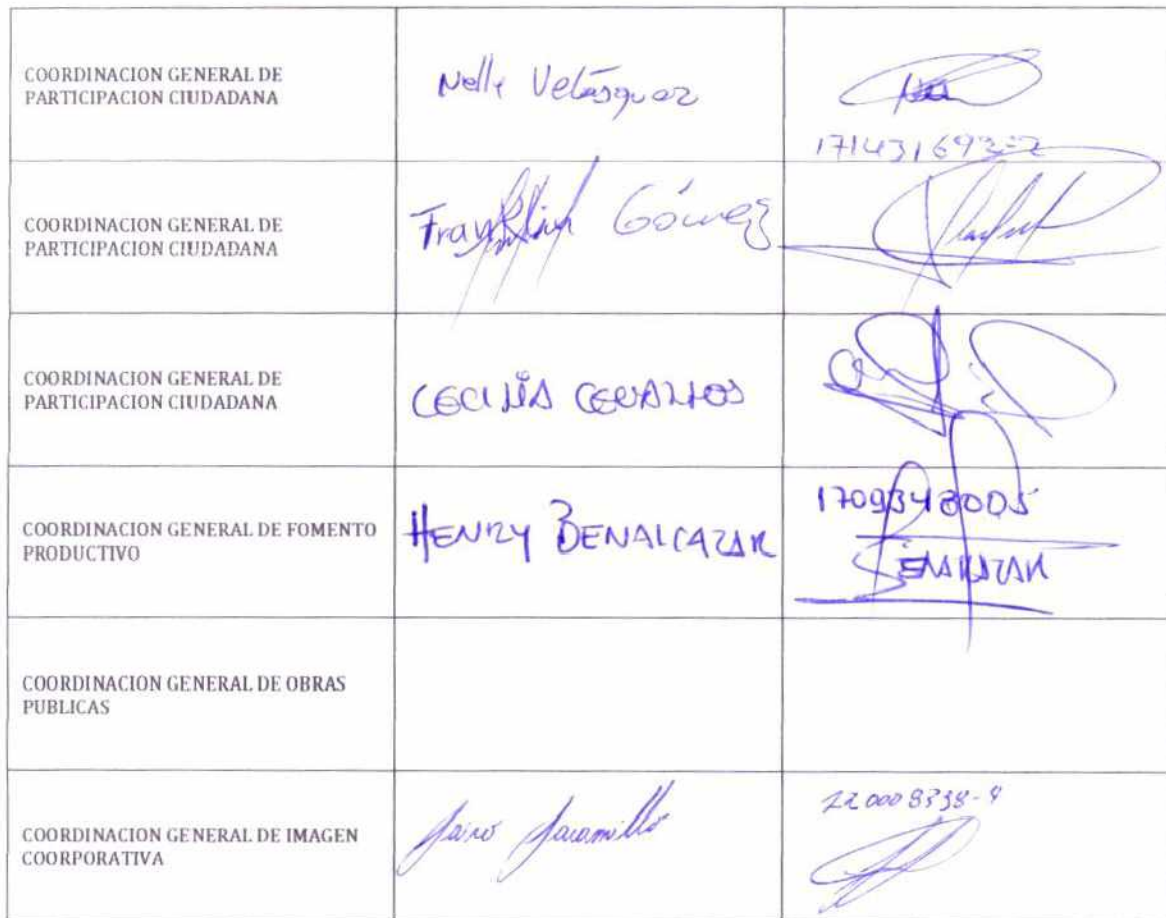 COORDINACION GENERAL DE
PARTICIPACION CIUDADANA
Nelly Velásquez
COORDINACION GENERAL DE
PARTICIPACION CIUDADANA
Franklin Gómez
COORDINACION GENERAL DE
PARTICIPACION CIUDADANA
CECILIA CEVALLOS
COORDINACION GENERAL DE FOMENTO
PRODUCTIVO
HENRY BENALCAZAR
1709348005
BENALCAZAR
COORDINACION GENERAL DE OBRAS
PUBLICAS
COORDINACION GENERAL DE IMAGEN
COORPORATIVA
Jairo Jaramillo